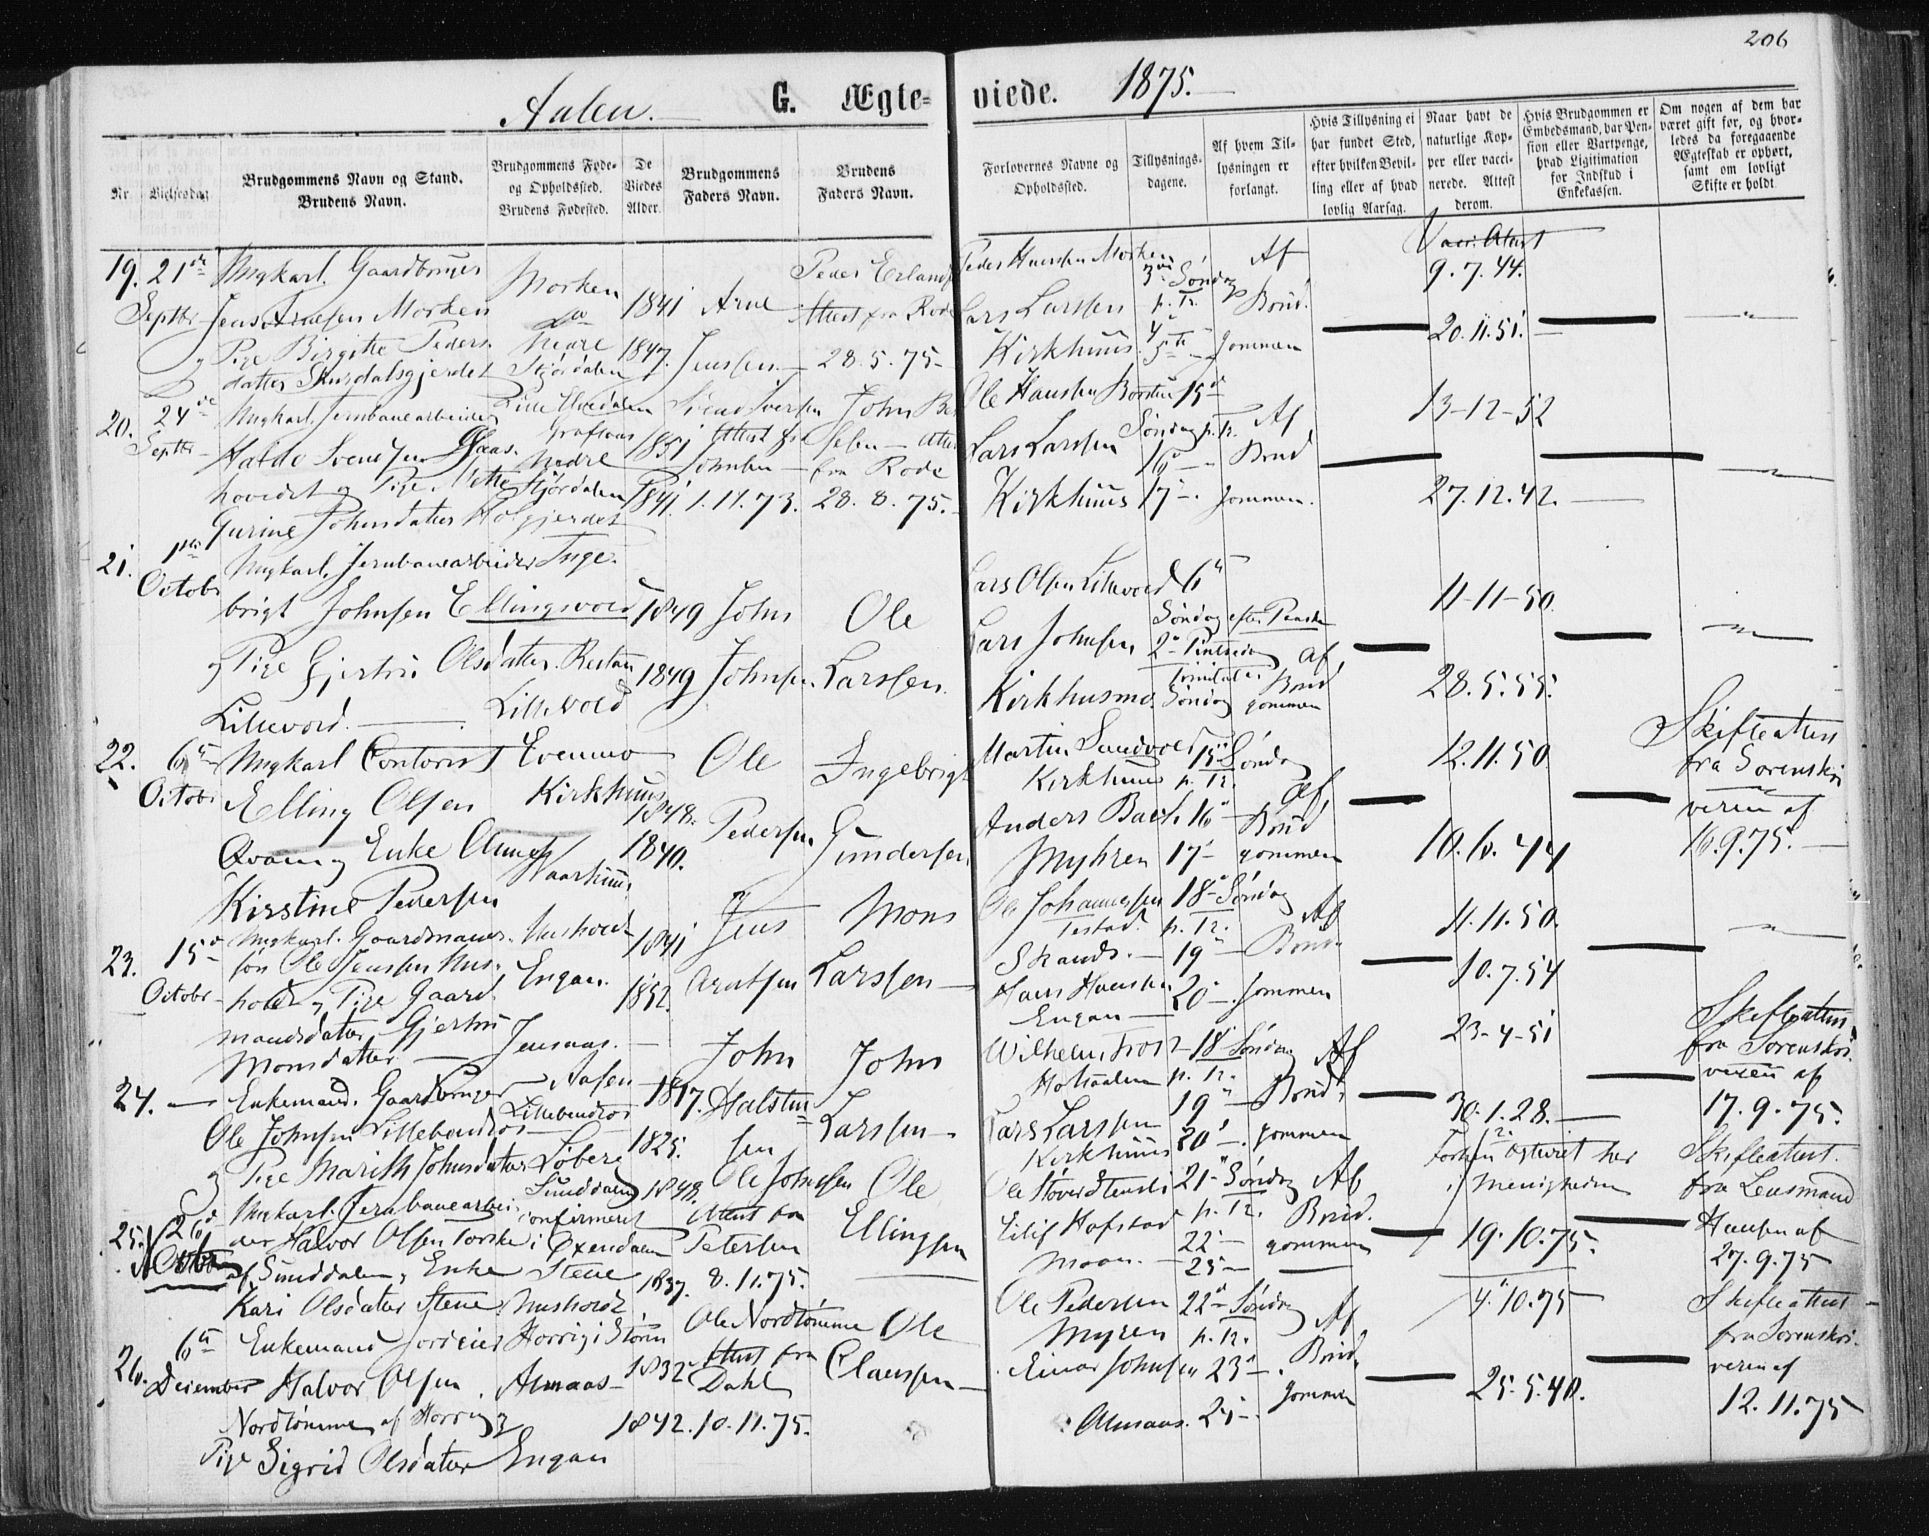 206
Aalen.
G. Ægte=
viede.
1875.
Nr.
Vielsesdag.
Brudgommens Navn og Stand.
Brudens Navn.
Brudgommens Føde-
og Opholdssted.
Brudens Fødested.
De
Viedes
Alder.
Brudgommens
Faders Navn.
Brudens
Faders Navn.
Forlovernes Navne og
Opholdssted.
Tillysnings-
dagene.
Af hvem Til-
lysningen er
forlangt.
Hvis Tillysning ei
har fundet Sted,
efter hvilken Bevil-
ling eller af hvad
lovlig Aarsag.
Naar havt de
naturlige Kop-
per eller vacci-
nerede. Attest
derom.
Hvis Brudgommen er
Embedsmand, har Pen-
sion eller Vartpenge,
hvad Ligitimation
for Indskud i
Enkekassen.
Om nogen af dem har
været gift før, og hvor-
ledes da foregaaende
Ægteskab er ophørt,
samt om lovligt
Skifte er holdt
19. 21de Septbr
Ungkarl. Gaardbruger
Jens Arnesen Morken
og Pige Birgitte Peders
datter Skurdalsgjerdet
Morken
Nedre
Stjørdalen
1841
1847.
Arne
Jensen
Peder Erlands
Attest fra Rode
28.5.75
Peder Hansen Morken
Lars Larssen
Kirkhuus
3die Søndag
p. Tr.
4
5te
Af
Brud.
gommen
9.7.44.
20.11.51.
20. 24de Septbr
Ungkarl. Jernbanearbeider
Svendsen
hovedet og Pige. Mette
Gurine Johnsdatter Holgjerdet
Nedre
Stjørdalen
1851
1841.
Svend Iversen
Attest fra
Johnsen
1.11.73.
John
fra Rode
28.8.75.
Ole Hansen
Lars Larssen
Kirkhuus
15de
Søndag p. Tr.
16
17
Af
Brud
gommen.
13-12-52
27.12.42.
21. 1ste Octobr
Ungkarl. Jernbanearbeider Inge-
brigt Johnsen Ellingsvold
og Pige Gjertru Olsdatter.
Lillevold.
Lillevold
1849
1849
John
Johnsen.
Ole
Larssen.
Lars Olsen Lillevold
Lars Johnsen
Kirkhusmo.
6te
Søndag efter Paaske
2den
Søndag
Af
Brud
gommen
11-11-50
28.5.55.
22. 6te Octobr
Ungkarl Contorist
Elling Olsen
og Enke
Kirstine Pedersen
Evenmo
Kirkhuus
Aarhuus
1848.
1840.
Ole
Pedersen
Ingebrigt
Gundersen
Martin Sundvold
Kirkhuus
Anders Bach
Myhren
15de Søndag
p. Tr.
16
17
Af
Brud
gommen
12.11.50
10.6.44
Skifteattest
fra Sorenskri
veren af
16.9.75.
23. 15de Octobr
Ungkarl. Gaardmands-
søn Ole Jensen Hus-
hold og Pige Gaard-
mandsdatter Gjertru
Monsdatter
Hushold
Engan.
1841
1852.
Jens
Arntsen
Mons
Larssen
Ole Johannessen
Strands.
Hans Hansen
Engan
18de Søndag
p. Tr.
19
20
Af
Brud-
gommen
11.11.50.
10.7.54
24.
Enkemand. Gaardbruger
Ole Johnsen
og Pige Marith Johnsdatter
Jensaas.
Aasen
1817.
1825.
John
Halsten-
sen
John
Larssen
Wilhelm
Lars Larssen
Kirkhuus
18 Søndag
p. Tr.
19
20
Af
Brud-
gommen
23-4-51
30.1.28.
Skifteattest
fra Sorenskri-
veren af
17.9.75.
25. 26de Octbr
Ungkarl. Jernbanearbei-
der Halvor Olsen
af Sunddalen og Enke
Kari Olsdatter Stene
Sunddalen
confirmeret
i Øxendalen
Stene
Hushold
1848.
1837.
Ole Johnsen
Attest fra
Petersen
8.11.75.
Ole
Ellingsen
Eilif Hofstad
Moan.
21de Søndag
p. Tr.
22
23
Af
Brud.
gommen
her
i Menigheden
19.10.75.
Skifteattest.
fra Lensmand
Hansen af
27.9.75
26. 6te December
Enkemand
Halvor Olsen
Nordtømme af Horrig og
Pige Sigrid Olsdatter
Horrig i Støren
Almaas
Engan
1832
1842.
Ole Nordtømme
Attest fra
Dahl
10.11.75.
Ole
Claussen
Ole Pedersen
Myren
Einar Johnsen
Almaas.
22de Søndag
p. Tr.
23
24
Af
Brud-
gommen
4.10.75
25.5.40.
Skifteattest
fra Sorenskri-
veren af
12.11.75